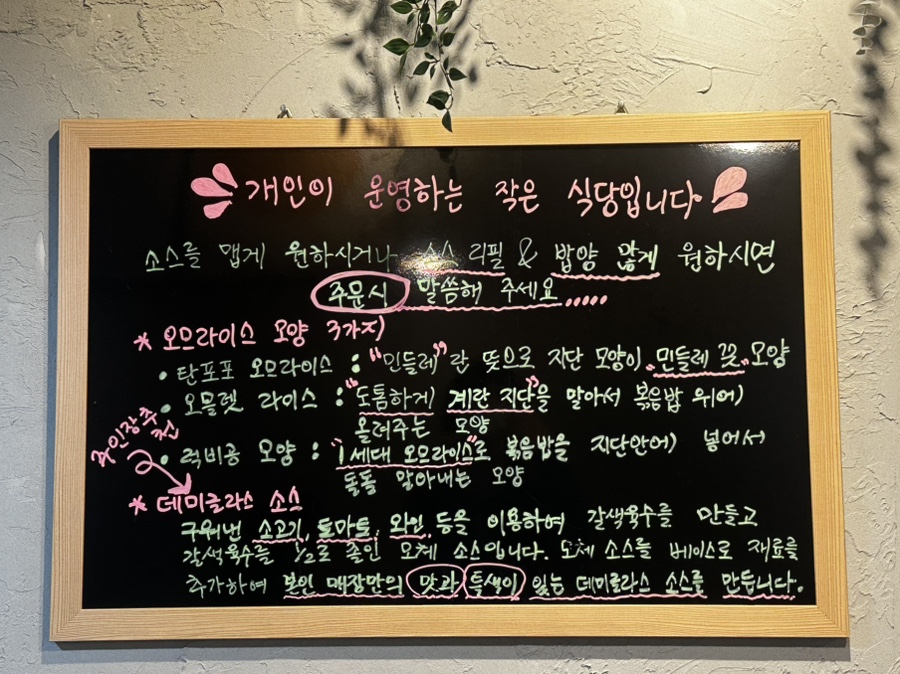 개인이 운영하는 작은 식당입니다
소스를 맵게 원하시거나 소스 리필 & 밥양 많게 원하시면
주문시 말씀해 주세요.....
* 오므라이스 모양 3가지
• 탄포포 오므라이스 : "민들레"란 뜻으로 지단 모양이 "민들레 꽃" 모양
• 오믈렛 라이스 : "도톰하게 계란 지단"을 말아서 볶음밥 위에
올려주는 모양
주인장 추천
• 럭비공 모양 : "1세대 오므라이스"로 볶음밥을 지단안에 넣어서
돌돌 말아내는 모양
* 데미글라스 소스
구워낸 소고기, 토마토, 와인 등을 이용하여 갈색육수를 만들고
갈색육수를 1/2로 졸인 모체 소스입니다. 모체 소스를 베이스로 재료를
추가하여 본인 매장만의 맛과 특색이 있는 데미글라스 소스를 만듭니다.